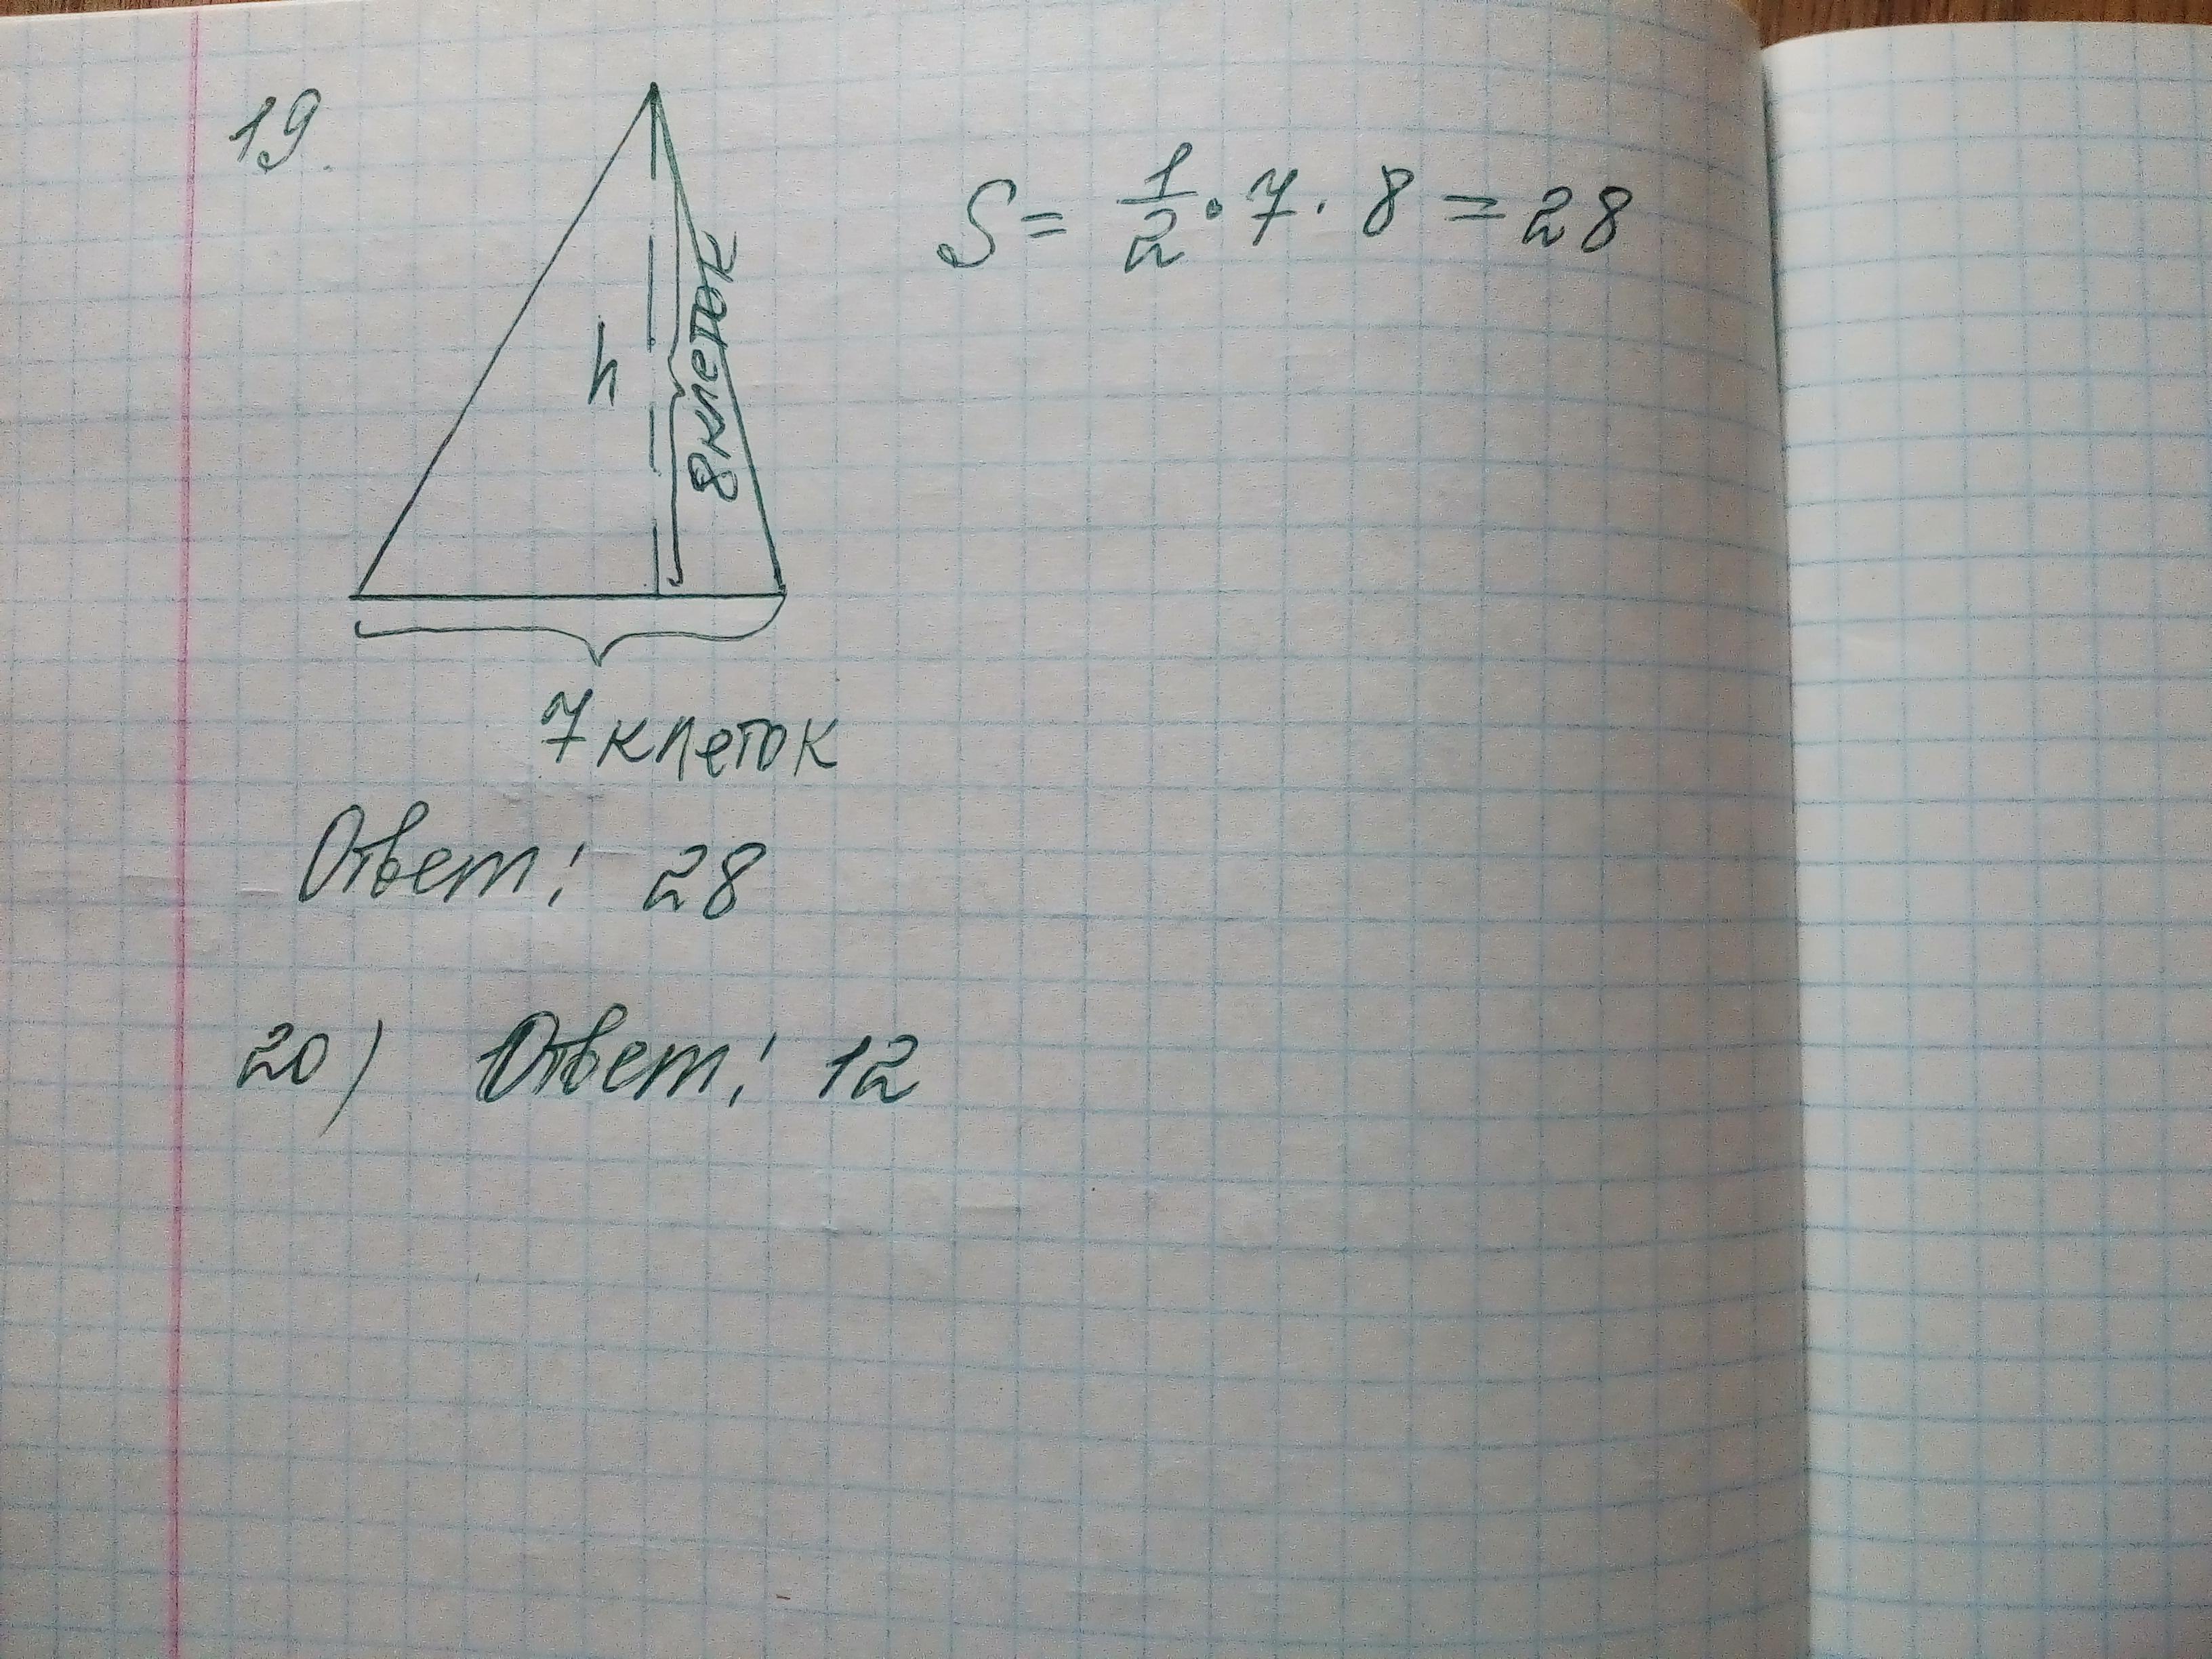 19.
S = 1/2 · 7 · 8 = 28
h
8 клеток
7 клеток
Ответ: 28
20) Ответ: 12